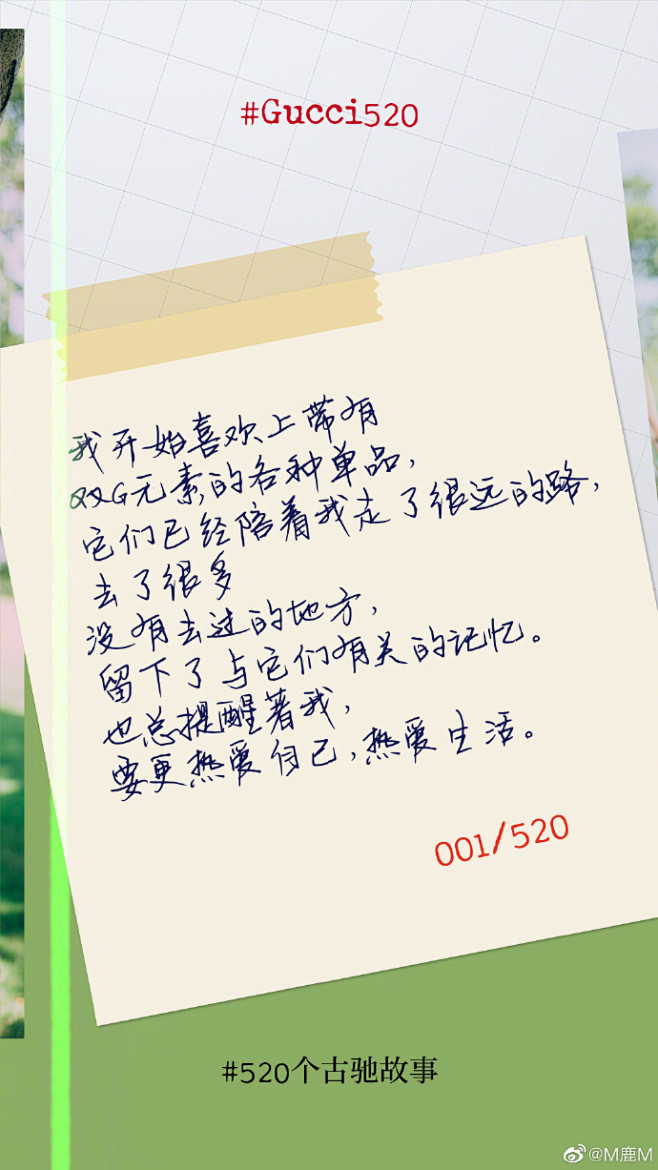 #Gucci520
我开始喜欢上带有
双G元素的各种单品，
它们已经陪着我走了很远的路，
去了很多
没有去过的地方，
留下了与它们有关的记忆。
也总提醒着我，
要更热爱自己，热爱生活。
001/520
#520个古驰故事
@M鹿M